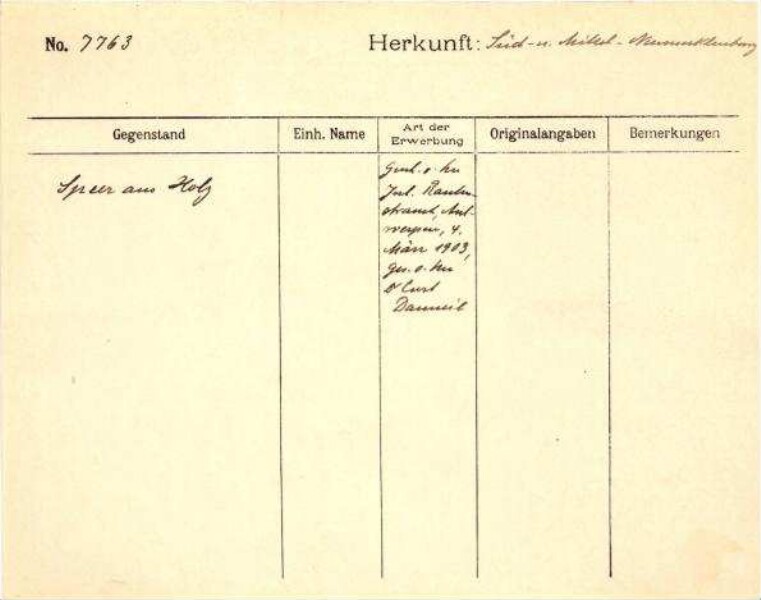 No. 7763
Herkunft: Süd- u. Mittel-Neumecklenburg
Gegenstand
Einh. Name
Art der
Erwerbung
Originalangaben
Bemerkungen
Speer aus Holz
Gesch. v. Hn
Jul. Rauten-
strauch, Ant-
werpen, 4.
März 1903,
ges. v. Hn
Dr Curt
Danneil